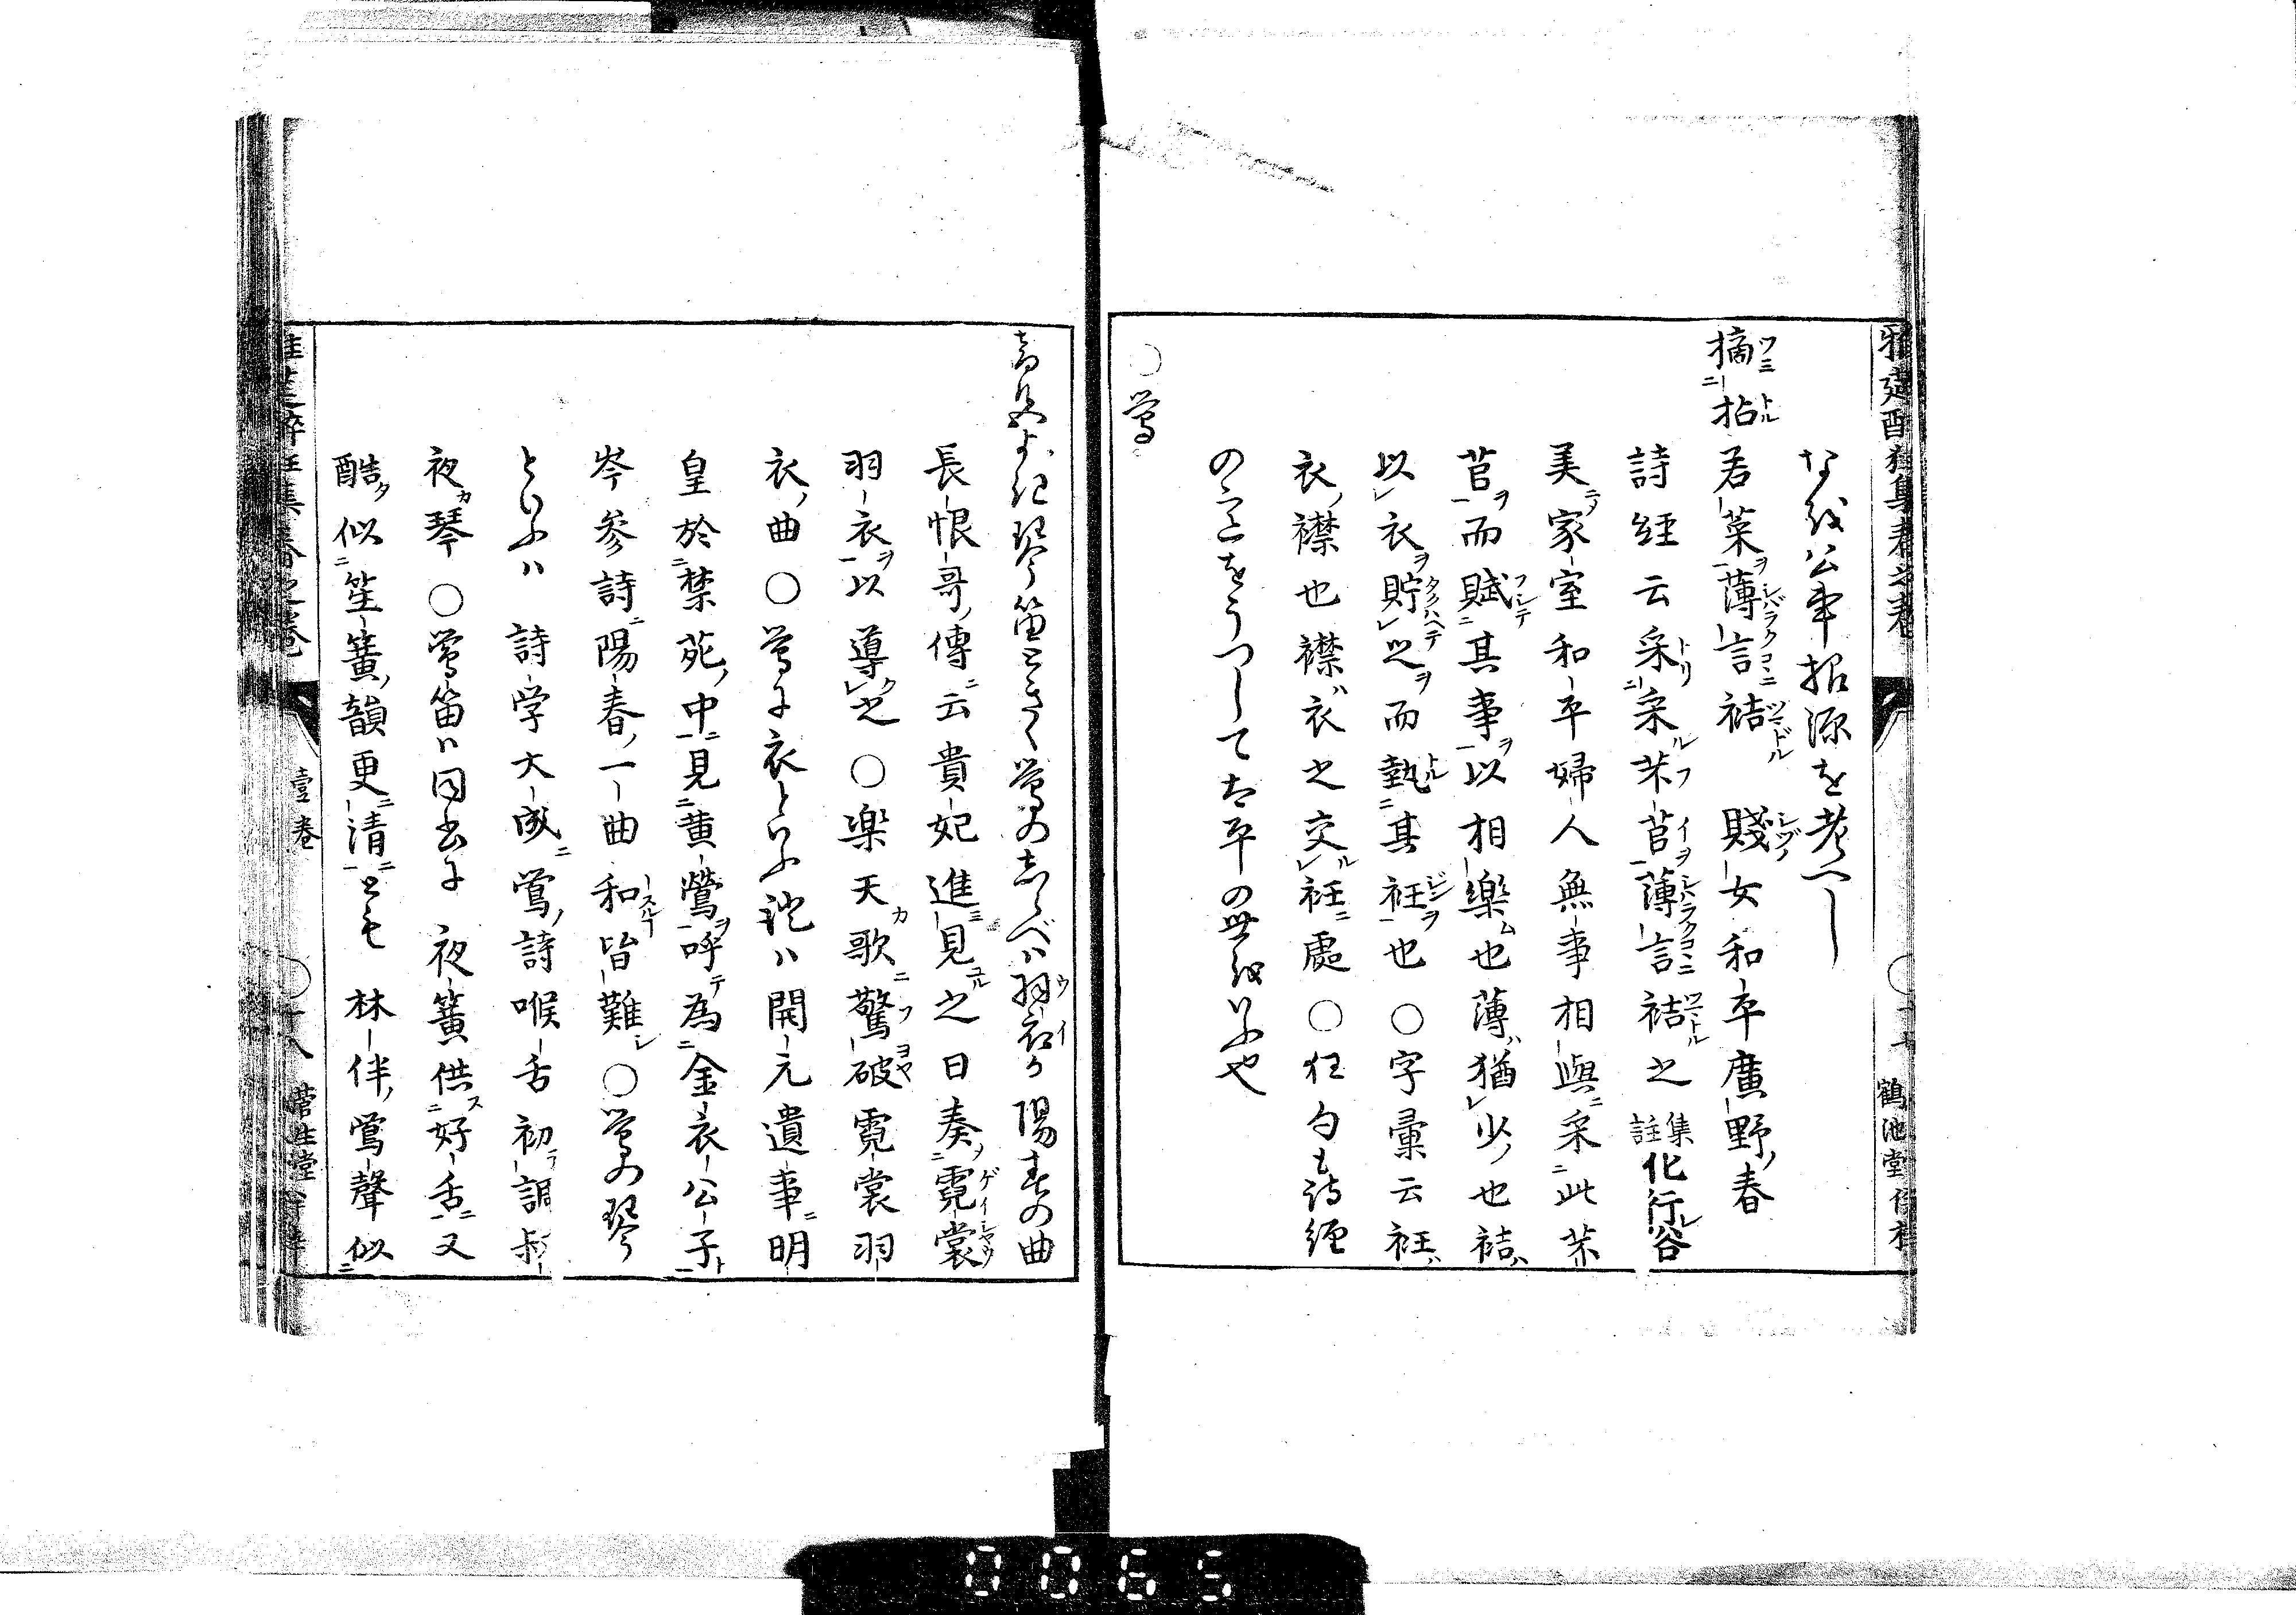 雅筵酔狂集春之巻
鶴池堂
なほ公事根源を考べし
摘拈若菜薄言袺 賤女和平廣野春
詩経云采采芣苢薄言袺之集註化行谷
美家室和平婦人無事相與采此芣
苢而賦其事以相樂也薄猶少也袺
以衣貯之而執其衽也○字彙云衽
衣襟也襟衣之交衽處○狂句も詩経
の心をうつして太平の世をいふや
○鶯
琴笛とさく鶯のしらべハ羽衣か陽春の曲
長恨哥傳云貴妃進見之日奏霓裳
羽衣以導之○楽天歌驚破霓裳羽
衣曲○鶯に衣といふ詞ハ開元遺事明
皇於禁苑中見黄鶯呼為金衣公子
岑參詩陽春一曲和皆難○鶯の琴
といふハ 詩学大成鶯詩喉舌初調叔
夜琴○鶯笛ハ同書に 夜簧供好舌又
酷似笙簧韻更清とも 林伴鶯聲似
壹巻
0065